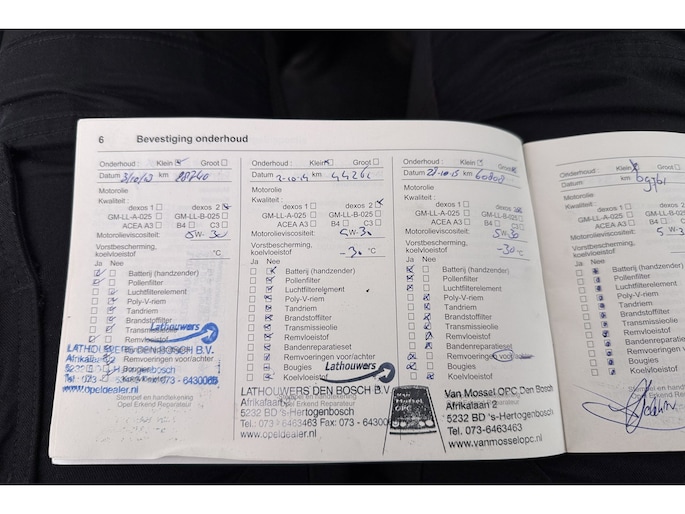 6 Bevestiging onderhoud
Onderhoud: Klein Groot
Datum 3/10/13 km 28740
Motorolie
Kwaliteit:
dexos 1 dexos 2
GM-LL-A-025 GM-LL-B-025
ACEA A3 B4 C3
Motorolieviscositeit: 5W-30
Vorstbescherming,
koelvloeistof °C
Ja Nee
Batterij (handzender)
Pollenfilter
Luchtfilterelement
Poly-V-riem
Tandriem
Brandstoffilter
Transmissieolie
Remvloeistof
Remvoeringen voor/achter
Lathouwers
LATHOUWERS DEN BOSCH B.V.
Afrikalaan
www.opeldealer.nl
Stempel en handtekening
Opel Erkend Reparateur
Onderhoud: Klein Groot
Datum 2-10-14 km 44261
Motorolie
Kwaliteit:
dexos 1 dexos 2
GM-LL-A-025 GM-LL-B-025
ACEA A3 B4 C3
Motorolieviscositeit: 5W-30
Vorstbescherming,
koelvloeistof -30 °C
Ja Nee
Batterij (handzender)
Pollenfilter
Luchtfilterelement
Poly-V-riem
Tandriem
Brandstoffilter
Transmissieolie
Remvloeistof
Bandenreparatieset
Remvoeringen voor/achter
Bougies
Koelvloeistof
Lathouwers
LATHOUWERS DEN BOSCH B.V.
Afrikalaan
5232 BD 's-Hertogenbosch
Tel.: 073-6463463 Fax: 073-
www.opeldealer.nl
Onderhoud: Klein Groot
Datum 28-10-15 km 60808
Motorolie
Kwaliteit:
dexos 1 dexos 2
GM-LL-A-025 GM-LL-B-025
ACEA A3 B4 C3
Motorolieviscositeit: 5W-30
Vorstbescherming,
koelvloeistof -30 °C
Ja Nee
Batterij (handzender)
Pollenfilter
Luchtfilterelement
Poly-V-riem
Tandriem
Brandstoffilter
Transmissieolie
Remvloeistof
Bandenreparatieset
Remvoeringen voor/achter
Bougies
Koelvloeistof
VAN
Mossel
OPC
Van Mossel OPC Den Bosch
Afrikalaan 2
5232 BD 's-Hertogenbosch
Tel. 073-6463463
www.vanmosselopc.nl
Onderhoud: Klein
Datum: km
Motorolie
Kwaliteit:
dexos 1
GM-LL-A-025
ACEA A3
Motorolieviscositeit:
Vorstbescherming,
koelvloeistof
Ja Nee
Batterij (handzender)
Pollenfilter
Luchtfilterelement
Poly-V-riem
Tandriem
Brandstoffilter
Transmissieolie
Remvloeistof
Bandenreparatieset
Remvoeringen
Bougies
Koelvloeistof
Stempel en
Opel Erkend